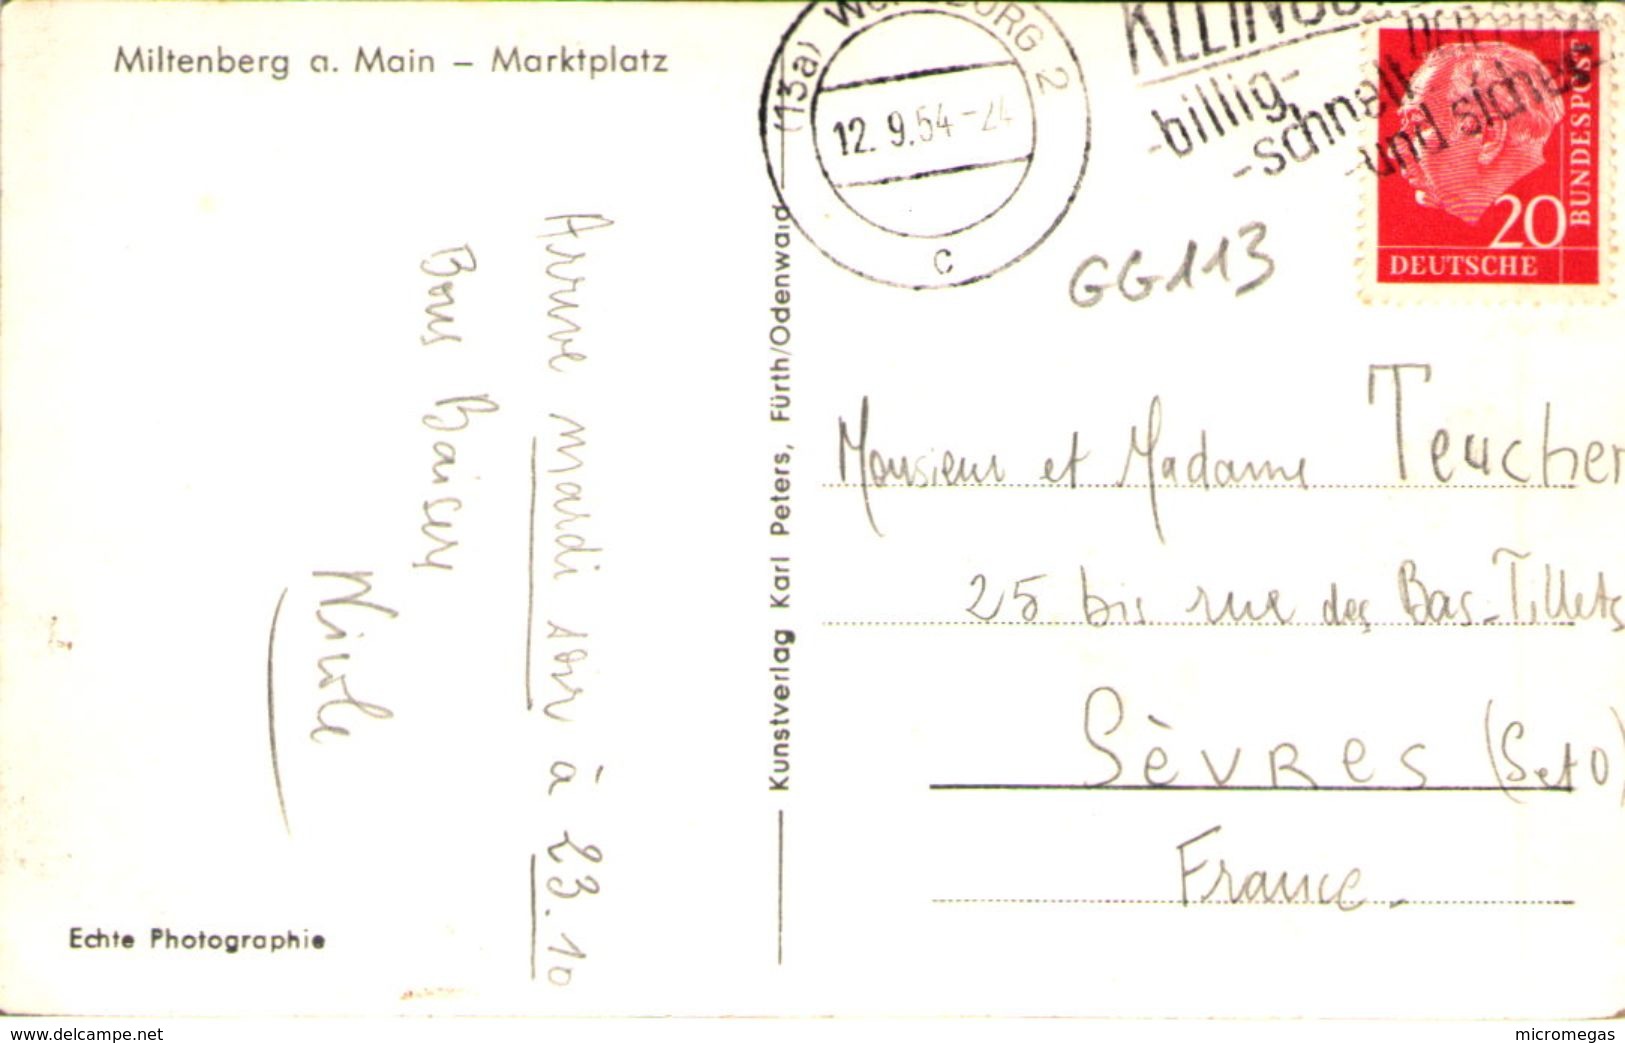 Miltenberg a. Main – Marktplatz
(13a) WÜRZBURG 2
12. 9. 54 - 24
c
billig
-schnell
und sicher
20
BUNDESPOST
DEUTSCHE
GG113
Arrive mardi soir à 23.10
Bons Baisers
Nicole
Kunstverlag Karl Peters, Fürth/Odenwald
Monsieur et Madame Teucher
25 bis rue des Bas-Tillets
SÈVRES (S et O)
France.
Echte Photographie
www.delcampe.net
micromegas